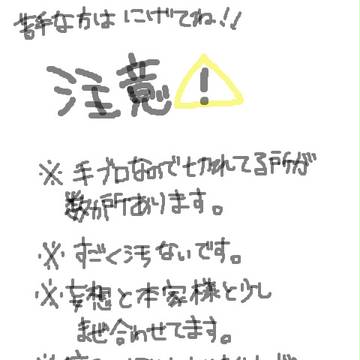 苦手な方はにげてね!!
注意!
※手ブロなので切れてる所が
数か所あります。
※すごく汚ないです。
※妄想と本家様と少し
まぜ合わせてます。